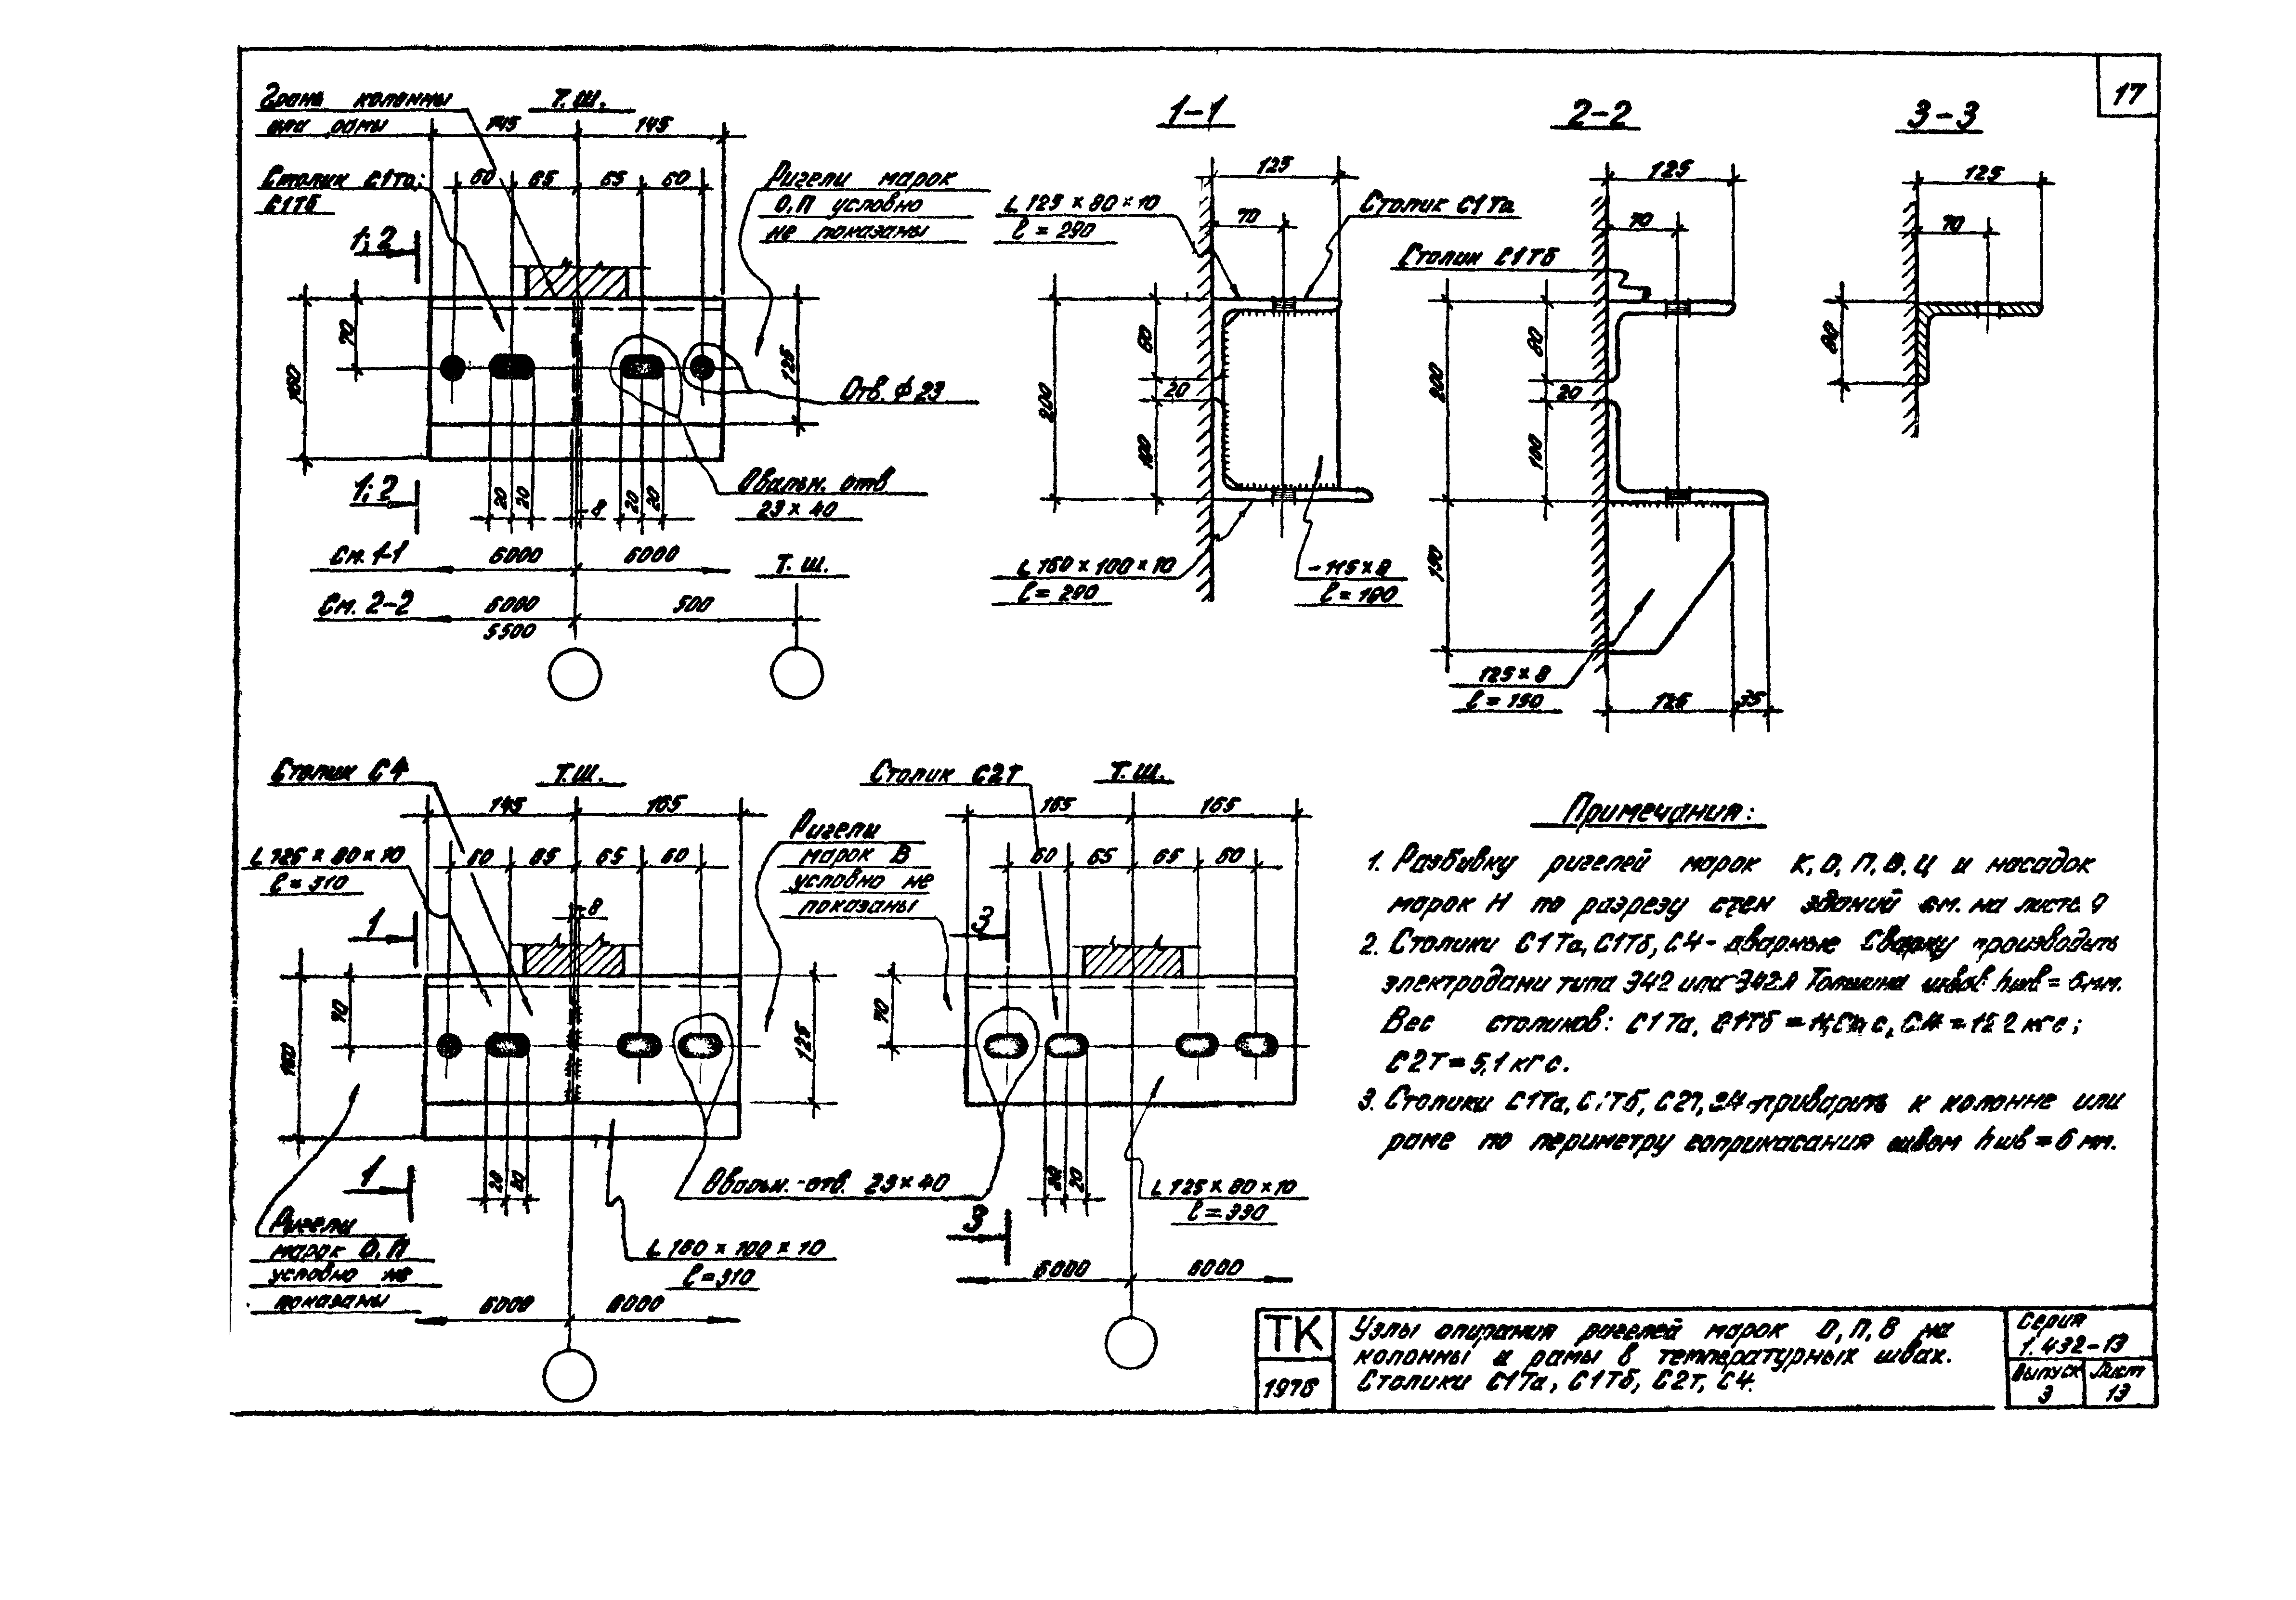 17
Грань колонны
или рамы
Т.Ш.
145 145
60 65 65 60
Столик С1Та;
С1Тб
Ригели марок
О,П условно
не показаны
1;2
70
160
125
Отв. ф 23
Овальн. отв
23 × 40
1;2
20 20 8 20 20
См. 1-1 6000 6000
Т.Ш.
См. 2-2 6000 500
5500
1-1
125
70
L 125 × 80 × 10
ℓ = 290
Столик С1Та
200
80
20
100
L 160 × 100 × 10
ℓ = 290
-115 × 8
ℓ = 180
2-2
125
70
Столик С1Тб
200
80
20
100
150
125 × 8
ℓ = 150
125 35
3-3
125
70
80
Столик С4
Т.Ш.
145 165
60 65 65 60
L 125 × 80 × 10
ℓ = 310
8
Ригели
марок В
условно не
показаны
1
70
160
125
1
20 20
Овальн. отв. 23 × 40
Ригели
марок О,П
условно не
показаны
L 160 × 100 × 10
ℓ = 310
6000 6000
Столик С2Т
Т.Ш.
165 165
60 65 65 60
3
70
20 20
3
L 125 × 80 × 10
ℓ = 330
6000 6000
Примечания:
1. Разбивку ригелей марок К, О, П, В, Ц и насадок
марок Н по разрезу стен зданий см. на листе 9
2. Столики С1Та, С1Тб, С4 - сварные Сварку производить
электродами типа Э42 или Э42А Толщина швов hшв = 6мм.
Вес столиков: С1Та, С1Тб = кгс, С4 = 12 2 кгс;
С2Т = 5,1 кгс.
3. Столики С1Та, С1Тб, С2Т, С4 - приварить к колонне или
раме по периметру соприкасания швом hшв = 6 мм.
ТК
1976
Узлы опирания ригелей марок О, П, В на
колонны и рамы в температурных швах.
Столики С1Та, С1Тб, С2т, С4.
Серия
1.432-13
Выпуск Лист
3 13